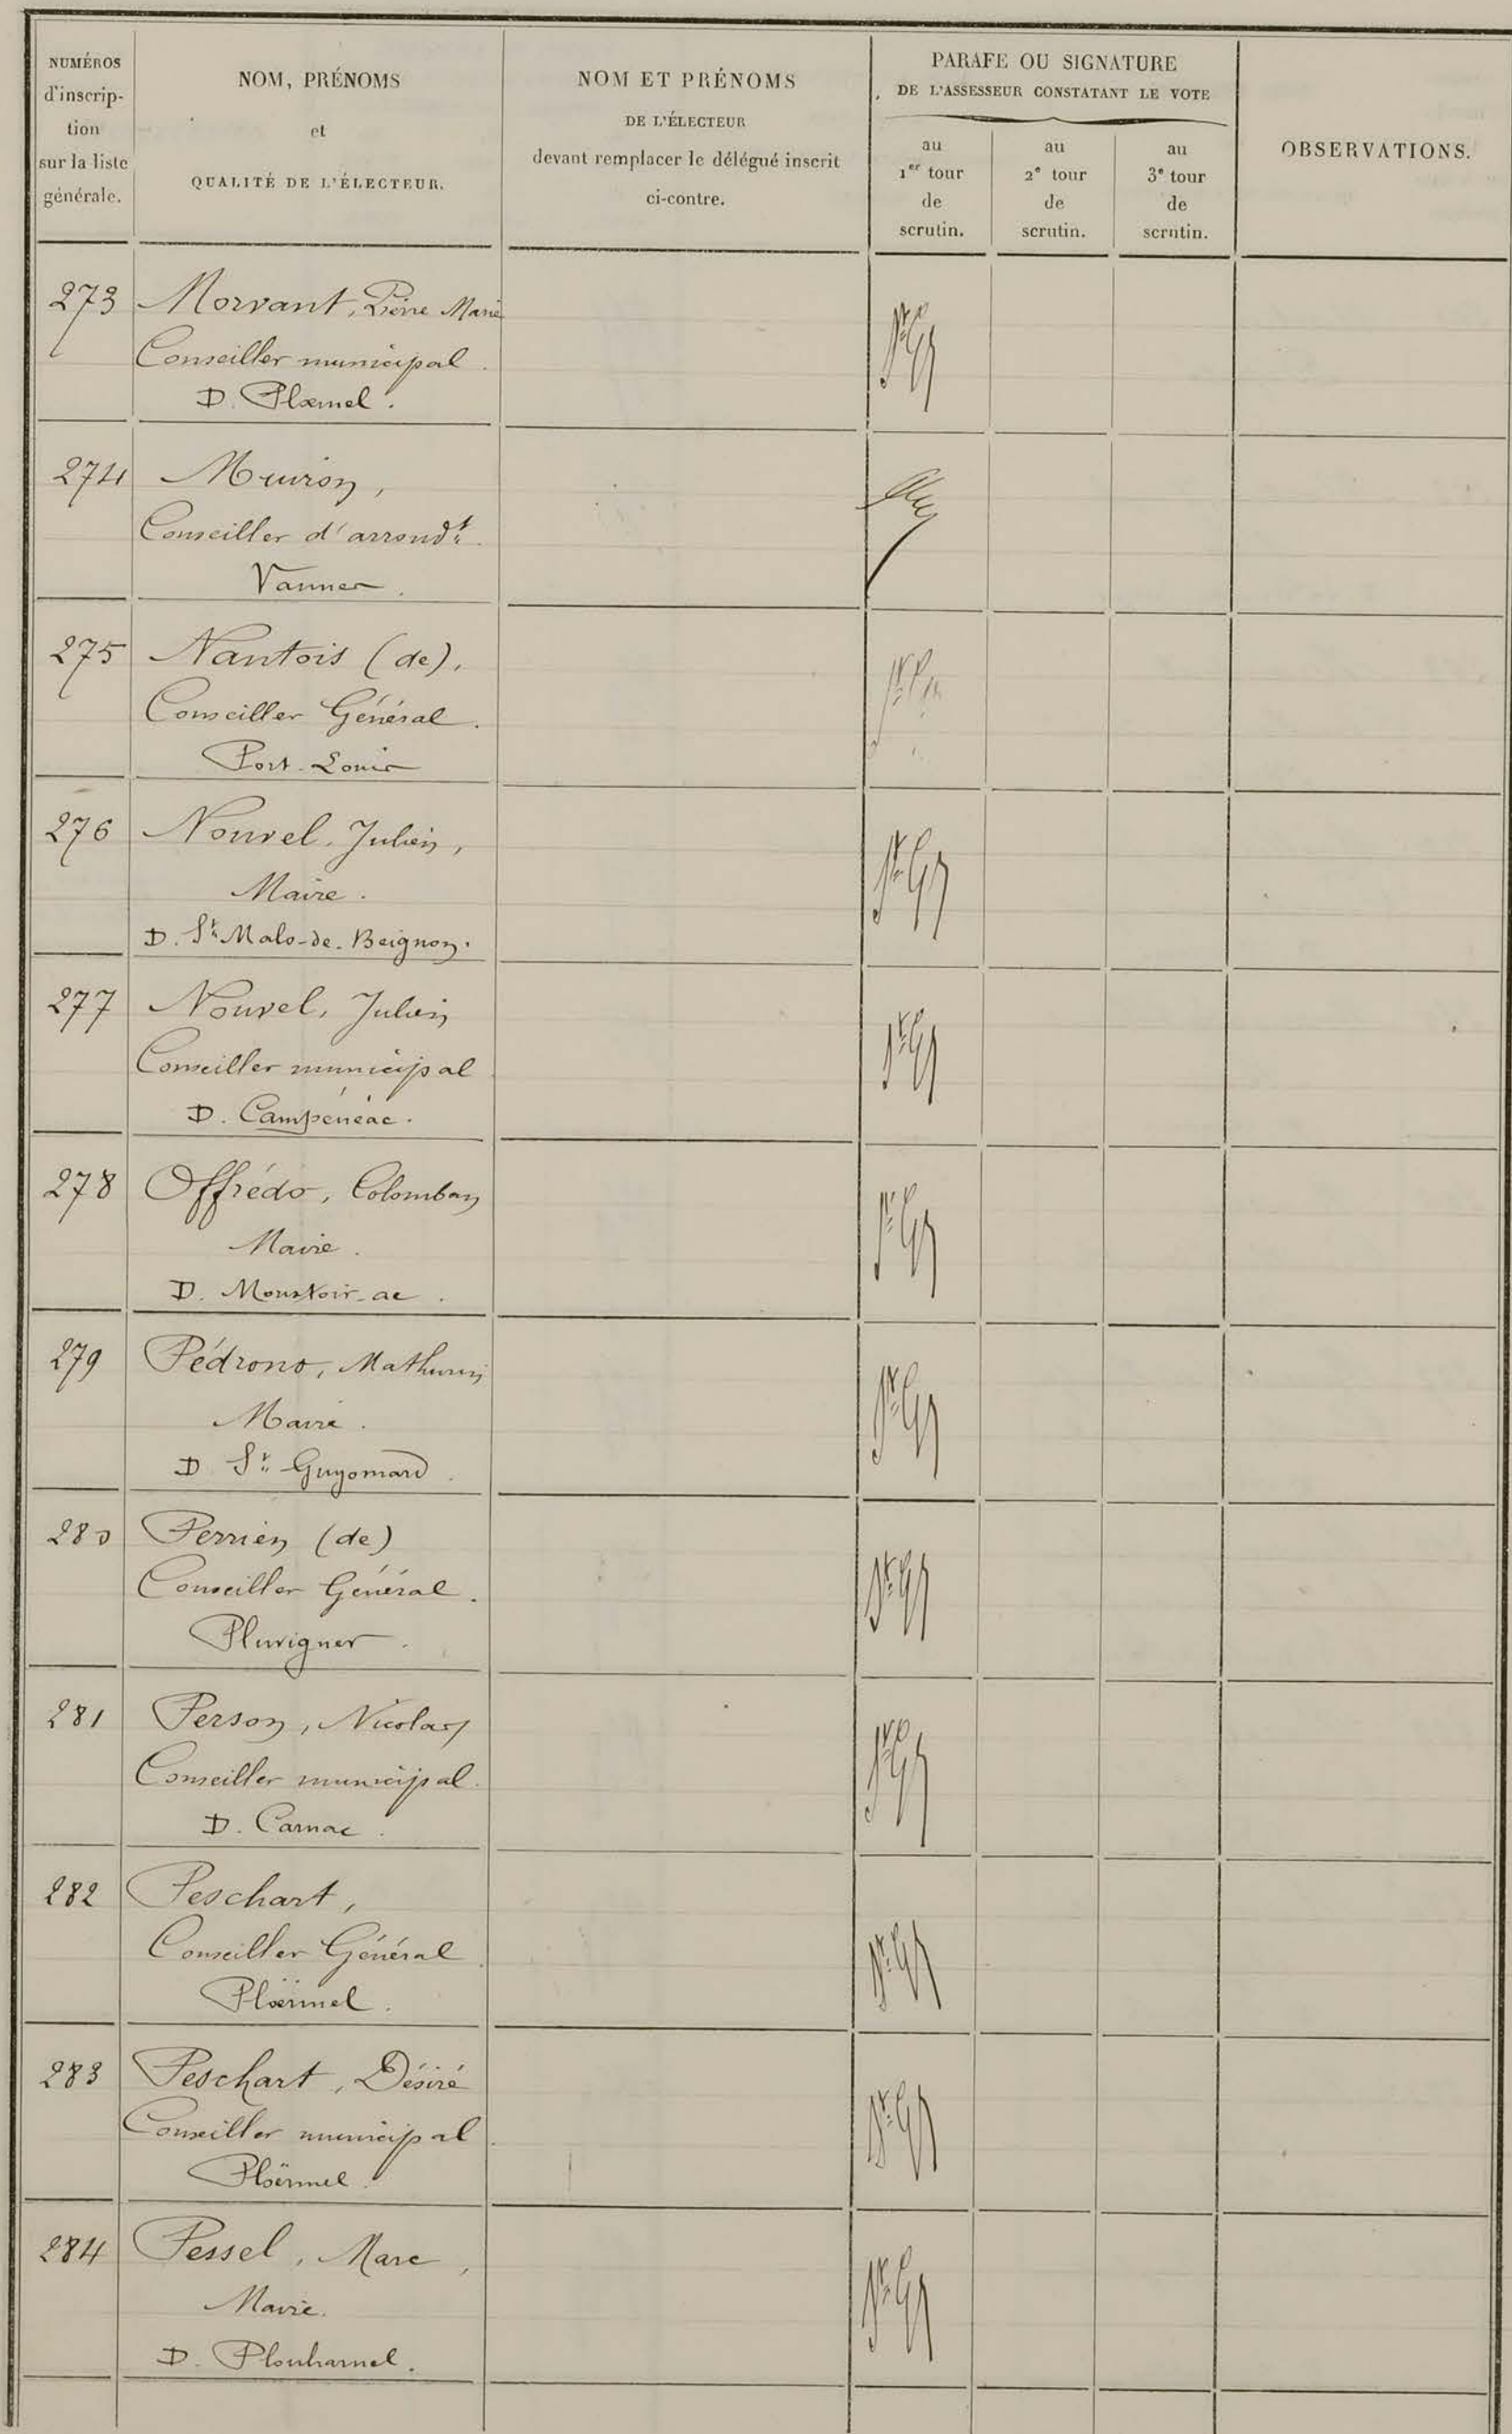 NUMÉROS
d'inscrip-
tion
sur la liste
générale.
NOM, PRÉNOMS
et
QUALITÉ DE L'ÉLECTEUR.
NOM ET PRÉNOMS
DE L'ÉLECTEUR
devant remplacer le délégué inscrit
ci-contre.
PARAFE OU SIGNATURE
DE L'ASSESSEUR CONSTATANT LE VOTE
au
1er tour
de
scrutin.
au
2e tour
de
scrutin.
au
3e tour
de
scrutin.
OBSERVATIONS.
273 Morvant, Pierre Marie
Conseiller municipal.
D. Ploemel.
274 Muiron,
Conseiller d'arrondt.
Vannes.
275 Nantois (de),
Conseiller Général.
Port-Louis
276 Nouvel, Julien,
Maire.
D. St Malo-de-Beignon.
277 Nouvel, Julien
Conseiller municipal
D. Campénéac.
278 Offrédo, Colomban
Maire.
D. Moustoir-ac.
279 Pédrono, Mathurin
Maire.
D. St Guyomard.
280 Perrien (de)
Conseiller Général.
Pluvigner.
281 Person, Nicolas
Conseiller municipal.
D. Carnac.
282 Peschart,
Conseiller Général.
Ploërmel.
283 Peschart, Désiré
Conseiller municipal
Ploërmel.
284 Pessel, Marc,
Maire.
D. Plouharnel.